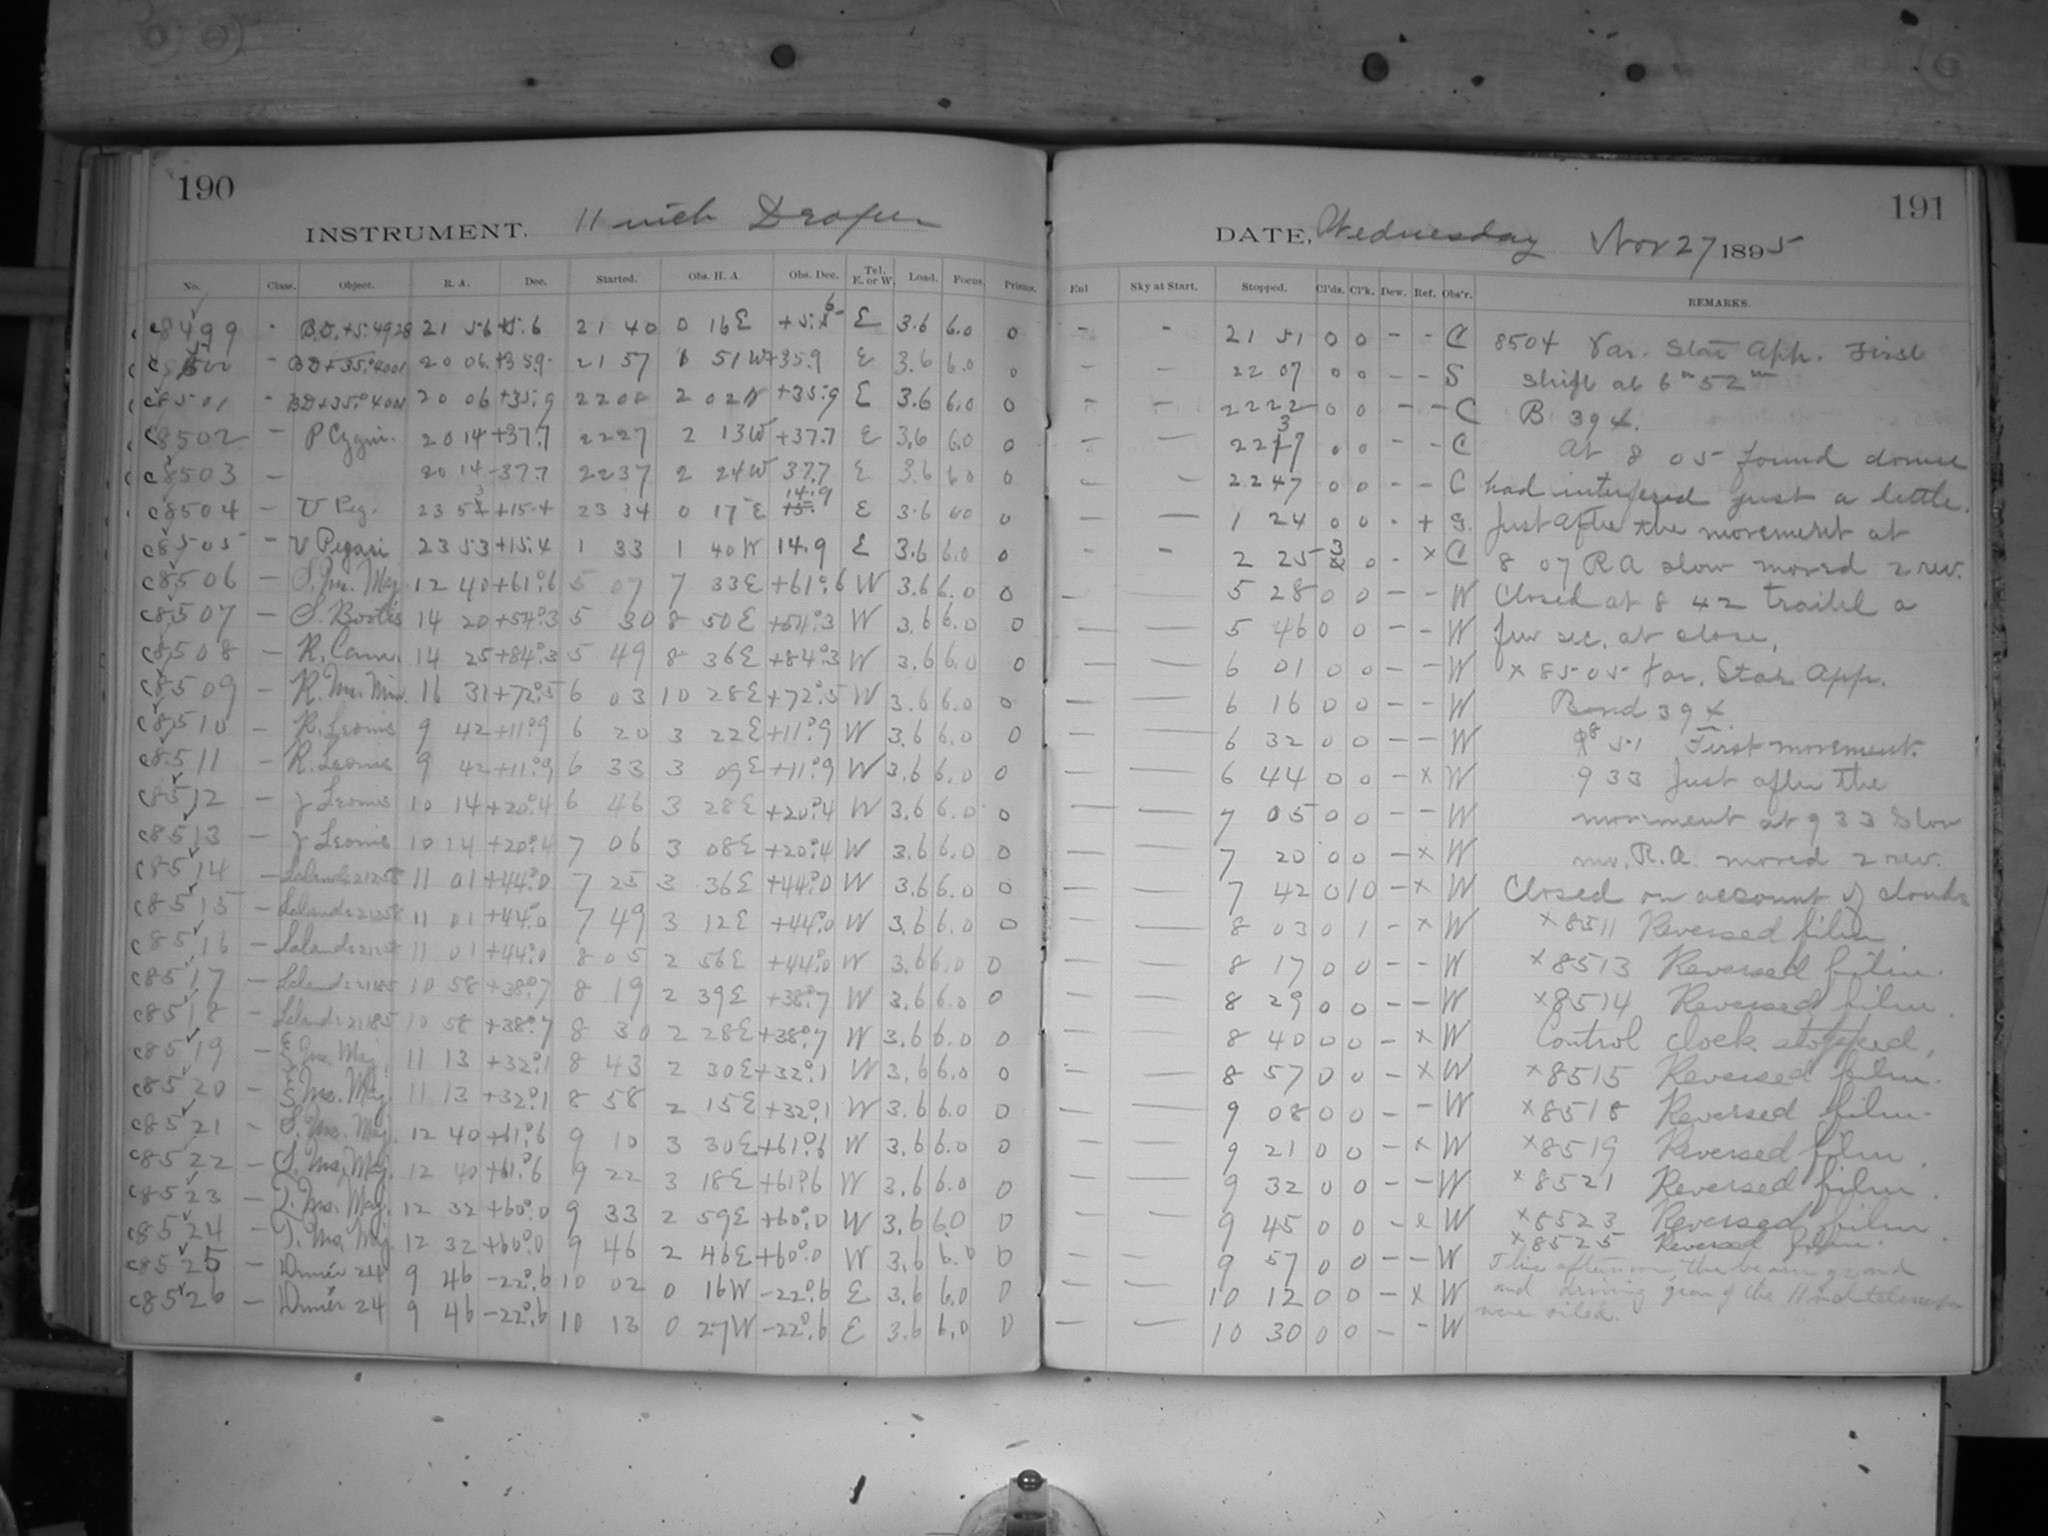 190
INSTRUMENT. 11 inch Draper
No. Class. Object. R. A. Dec. Started. Obs. H. A. Obs. Dec. Tel. E. or W. Load. Focus. Prisms.
c8499 - B.D.+5.4928 21 56 +5.6 21 40 0 16E 3.6 6.0 0
BD+35.4001 20 06 +35.9 21 57 1 51W +35.9 E 3.6 6.0 0
c8501 - BD+35.4001 20 06 +35.9 2 02W +35.9 E 3.6 6.0 0
c8502 - P Cygni. 20 14 +37.7 22 27 2 13W +37.7 E 3.6 6.0 0
c8503 - 20 14 -37.7 22 37 2 24W 37.7 E 3.6 6.0 0
c8504 - V Peg. 23 53 +15.4 23 34 0 17E 14.9 E 3.6 6.0 0
c8505 - V Pegasi 23 53 +15.4 1 33 1 40W 14.9 E 3.6 6.0 0
c8506 - 12 40 +61°.6 5 07 7 33E +61°.6 W 3.6 6.0 0
c8507 - S. Bootis 14 20 +54°.3 5 30 8 50E +54°.3 W 3.6 6.0 0
c8508 - R. Cam. 14 25 +84°.3 5 49 8 36E +84°.3 W 3.6 6.0 0
c8509 - 16 31 +72°.5 6 03 10 28E +72°.5 W 3.6 6.0 0
c8510 - R. Leonis 9 42 +11°.9 6 20 3 22E +11°.9 W 3.6 6.0 0
c8511 - R. Leonis 9 42 +11°.9 6 33 3 09E +11°.9 W 3.6 6.0 0
c8512 - γ Leonis 10 14 +20°.4 6 46 3 28E +20°.4 W 3.6 6.0 0
c8513 - γ Leonis 10 14 +20°.4 7 06 3 08E +20°.4 W 3.6 6.0 0
c8514 - Lalande 21258 11 01 +44°.0 7 25 3 36E +44°.0 W 3.6 6.0 0
c8515 - Lalande 21258 11 01 +44°.0 7 49 3 12E +44°.0 W 3.6 6.0 0
c8516 - Lalande 21258 11 01 +44°.0 8 05 2 56E +44°.0 W 3.6 6.0 0
c8517 - Lalande 21185 10 58 +38°.7 8 19 2 39E +38°.7 W 3.6 6.0 0
c8518 - Lalande 21185 10 58 +38°.7 8 30 2 28E +38°.7 W 3.6 6.0 0
c8519 - ξ Urs. Maj. 11 13 +32°.1 8 43 2 30E +32°.1 W 3.6 6.0 0
c8520 - ξ Urs. Maj. 11 13 +32°.1 8 58 2 15E +32°.1 W 3.6 6.0 0
c8521 - S. Urs. Maj. 12 40 +61°.6 9 10 3 30E +61°.6 W 3.6 6.0 0
c8522 - S. Urs. Maj. 12 40 +61°.6 9 22 3 18E +61°.6 W 3.6 6.0 0
c8523 - T. Urs. Maj. 12 32 +60°.0 9 33 2 59E +60°.0 W 3.6 6.0 0
c8524 - T. Urs. Maj. 12 32 +60°.0 9 46 2 46E +60°.0 W 3.6 6.0 0
c8525 - Dunér 24 9 46 -22°.6 10 02 0 16W -22°.6 E 3.6 6.0 0
c8526 - Dunér 24 9 46 -22°.6 10 13 0 27W -22°.6 E 3.6 6.0 0
191
DATE, Wednesday Nov 27 1895
Enl Sky at Start. Stopped. Cl'ds. Cl'k. Dew. Ref. Obs'r. REMARKS.
- - 21 51 0 0 - - C 8504 Var. Star App. First
- - 22 07 0 0 - - S shift at 6 52
- - 22 22 0 0 - - C B 39 x.
- - 0 0 - - C At 8 05 found dome
- - 22 47 0 0 - - C had interfered just a little.
- - 1 24 0 0 - + G. Just after the movement at
- - 2 25 0 - x C 8 07 RA slow moved 2 rev.
- - 5 28 0 0 - - W Closed at 8 42 trailed a
- - 5 46 0 0 - - W few sec. at close.
- - 6 01 0 0 - - W x 8505 Var. Star App.
- - 6 16 0 0 - - W Bond 39 x.
- - 6 32 0 0 - - W 8 51 First movement.
- - 6 44 0 0 - x W 9 33 Just after the
- - 7 05 0 0 - - W movement at 9 33 Slow
- - 7 20 0 0 - x W mo. R.A. moved 2 rev.
- - 7 42 0 10 - x W Closed on account of clouds
- - 8 03 0 1 - x W x8511 Reversed film.
- - 8 17 0 0 - - W x8513 Reversed film.
- - 8 29 0 0 - - W x8514 Reversed film.
- - 8 40 0 0 - x W Control clock stopped.
- - 8 57 0 0 - x W x8515 Reversed film.
- - 9 08 0 0 - - W x8518 Reversed film.
- - 9 21 0 0 - x W x8519 Reversed film.
- - 9 32 0 0 - - W x8521 Reversed film.
- - 9 45 0 0 - x W x8523 Reversed film
x8525 Reversed film.
- - 9 57 0 0 - - W This afternoon, the
- - 10 12 0 0 - x W and driving gear of the 11 inch telescope
- - 10 30 0 0 - - W were oiled.